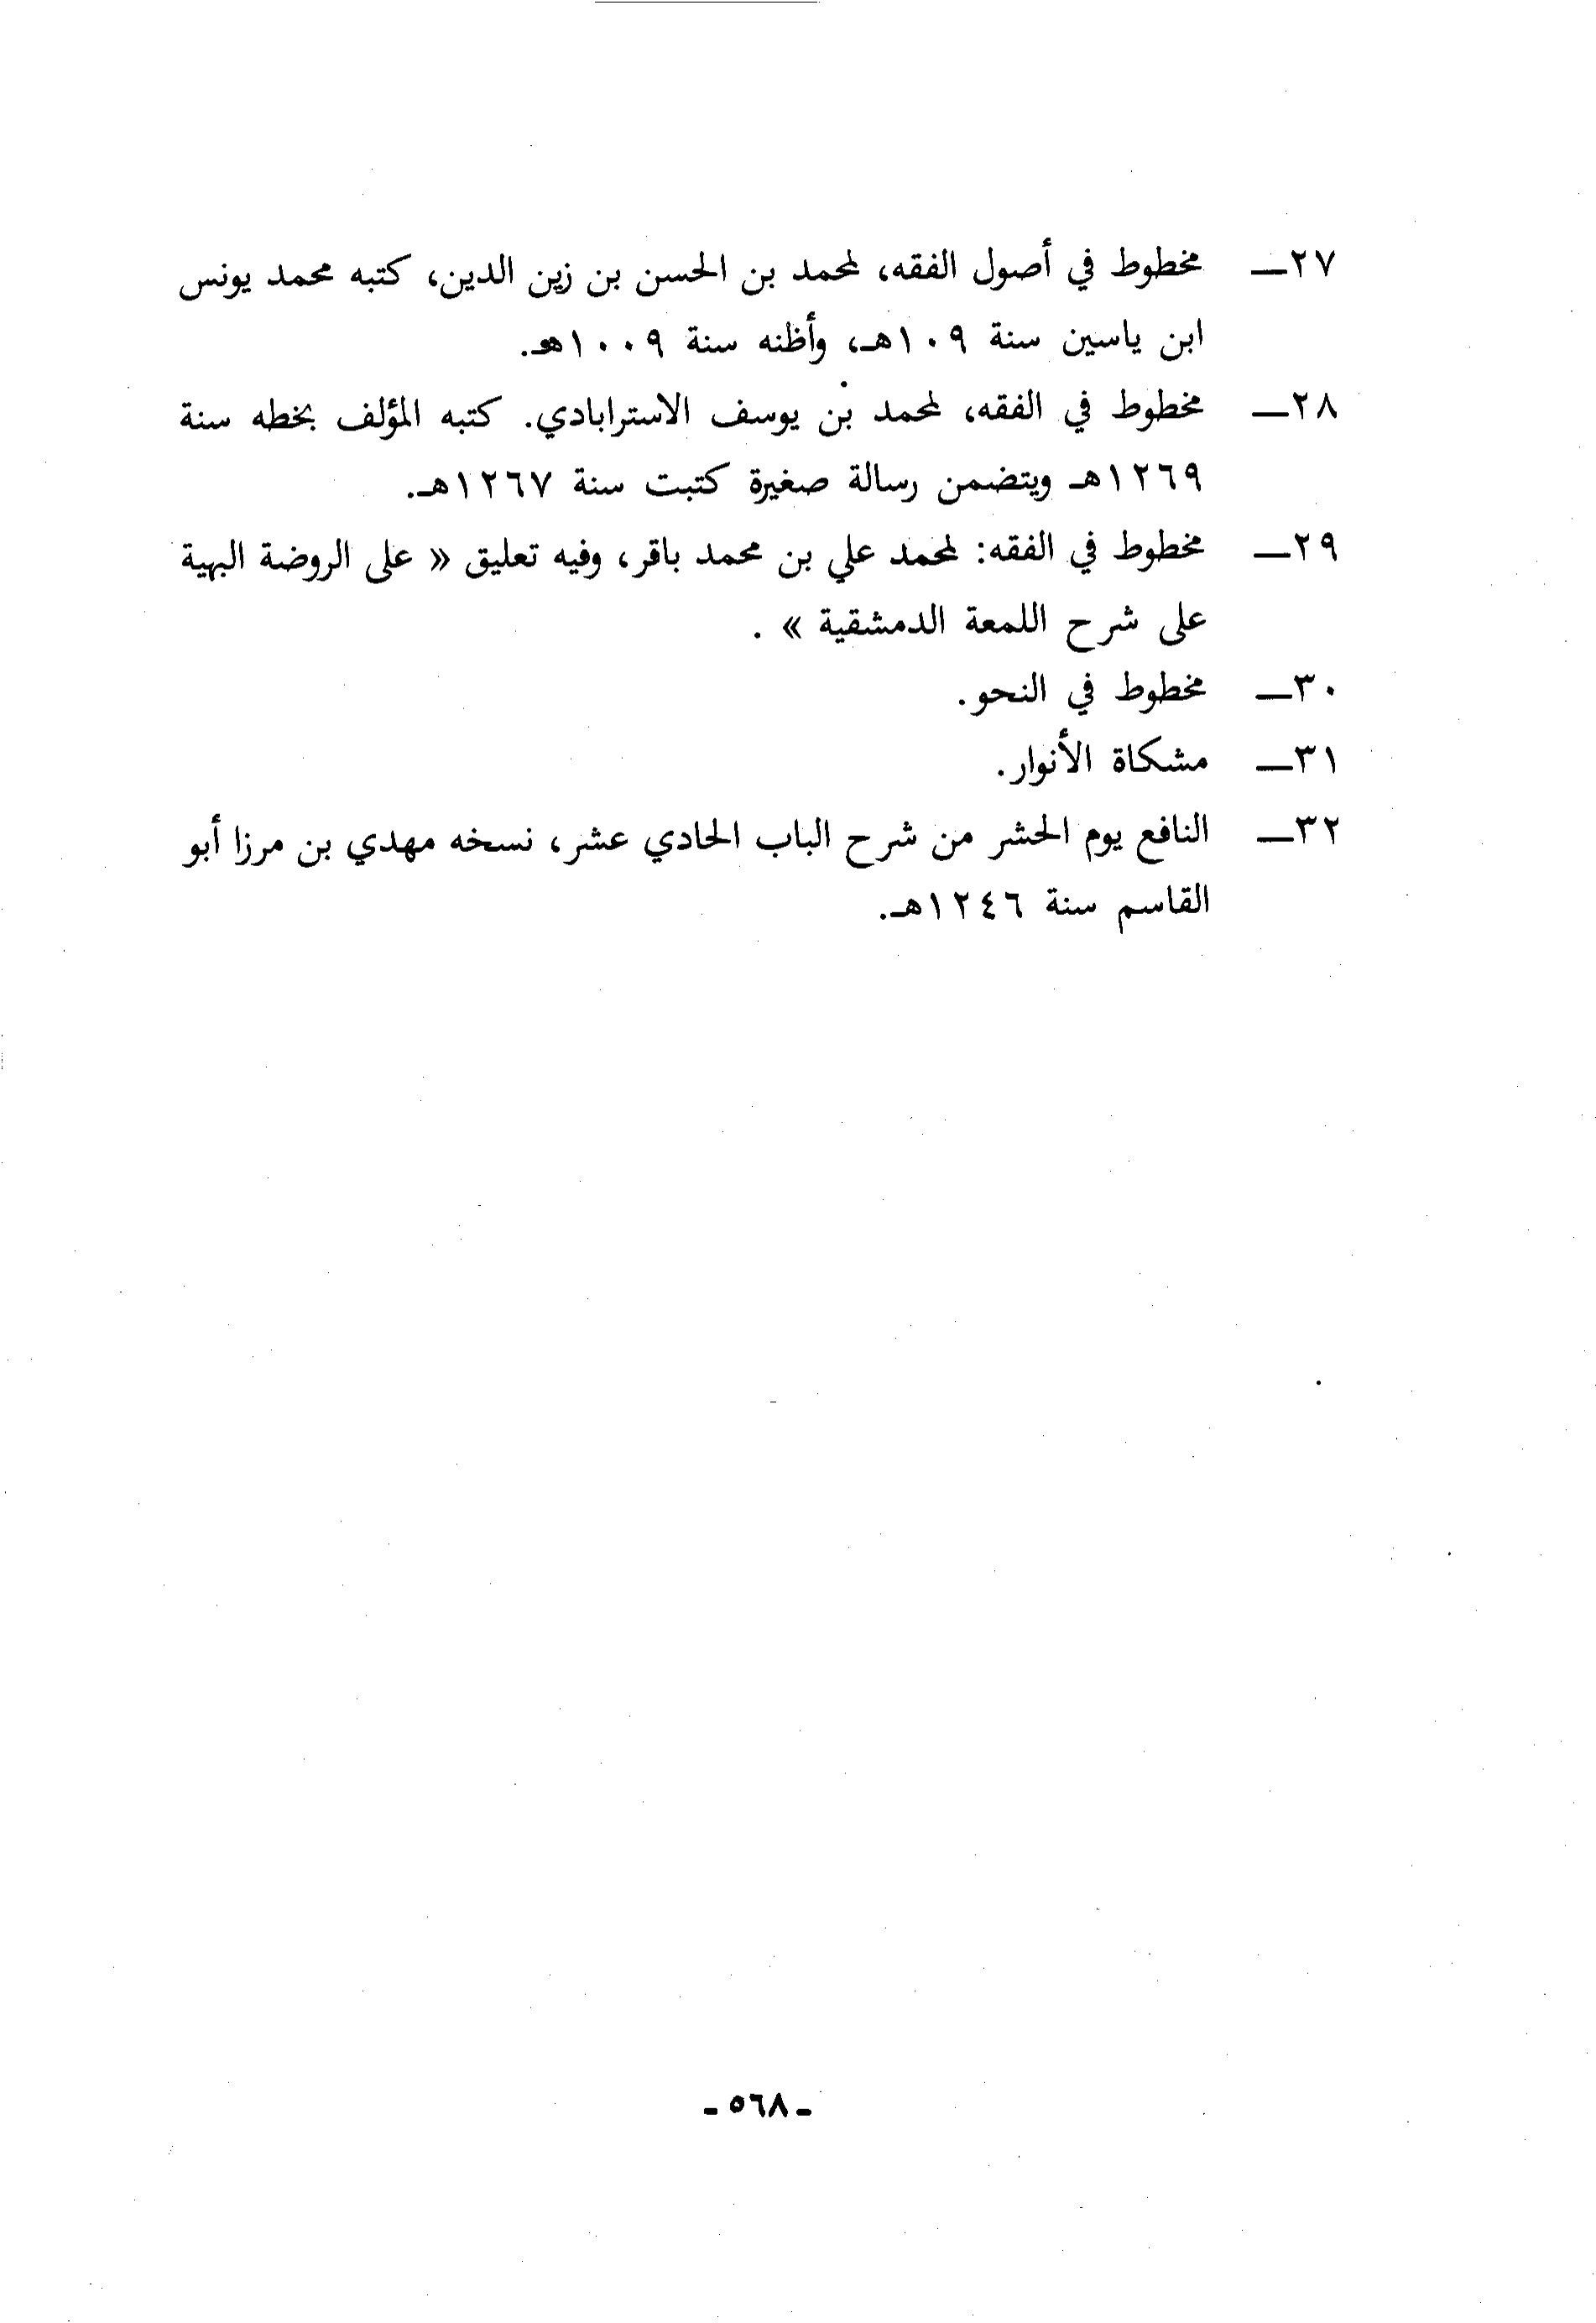 ٢٧— مخطوط في أصول الفقه، لمحمد بن الحسن بن زين الدين، كتبه محمد يونس
ابن ياسين سنة ١٠٩هـ، وأظنه سنة ١٠٠٩هـ.
٢٨— مخطوط في الفقه، لمحمد بن يوسف الاسترابادي. كتبه المؤلف بخطه سنة
١٢٦٩هـ ويتضمن رسالة صغيرة كتبت سنة ١٢٦٧هـ.
٢٩— مخطوط في الفقه: لمحمد علي بن محمد باقر، وفيه تعليق « على الروضة البهية
على شرح اللمعة الدمشقية » .
٣٠— مخطوط في النحو.
٣١— مشكاة الأنوار.
٣٢— النافع يوم الحشر من شرح الباب الحادي عشر، نسخه مهدي بن مرزا أبو
القاسم سنة ١٢٤٦هـ.
- ٥٦٨ -